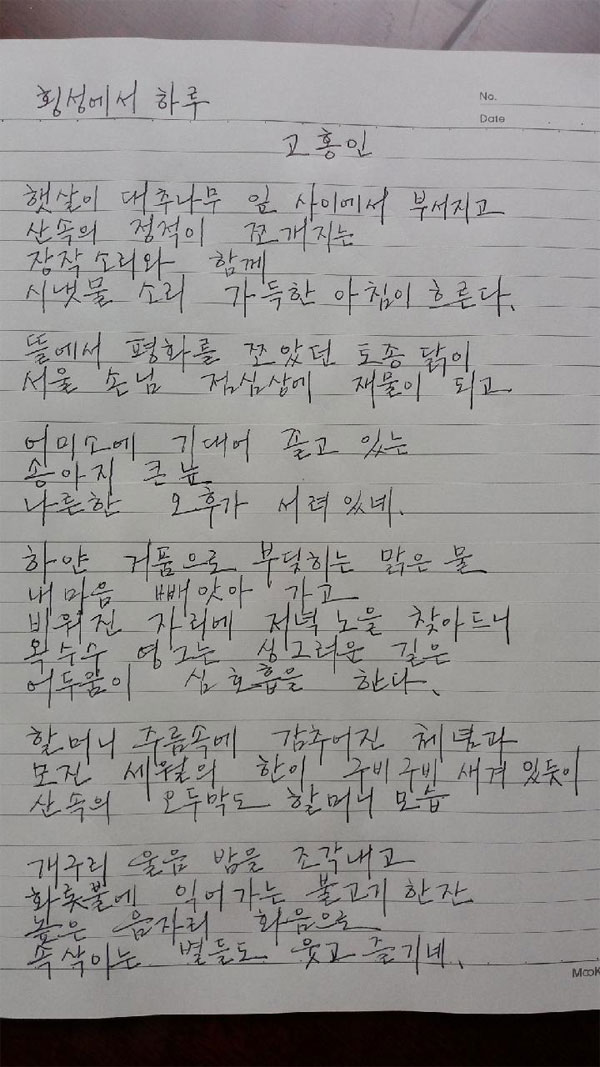 횡성에서 하루
No.
Date
고홍인
햇살이 대추나무 잎 사이에서 부서지고
산속의 정적이 쪼개지는
장작소리와 함께
시냇물 소리 가득한 아침이 흐른다.
뜰에서 평화를 쪼았던 토종 닭이
서울 손님 점심상에 재물이 되고
어미소에 기대어 졸고 있는
송아지 큰 눈
나른한 오후가 서려 있네.
하얀 거품으로 부딪히는 맑은 물
내 마음 빼앗아 가고
비워진 자리에 저녁노을 찾아드니
옥수수 영그는 싱그러운 길은
어두움이 심호흡을 한다.
할머니 주름속에 감추어진 체념과
모진 세월의 한이 구비구비 새겨 있듯이
산속의 오두막도 할머니 모습
개구리 울음 밤을 조각내고
화롯불에 익어가는 불고기 한잔
높은 음자리 화음으로
속삭이는 별들도 웃고 즐기네.
MooK